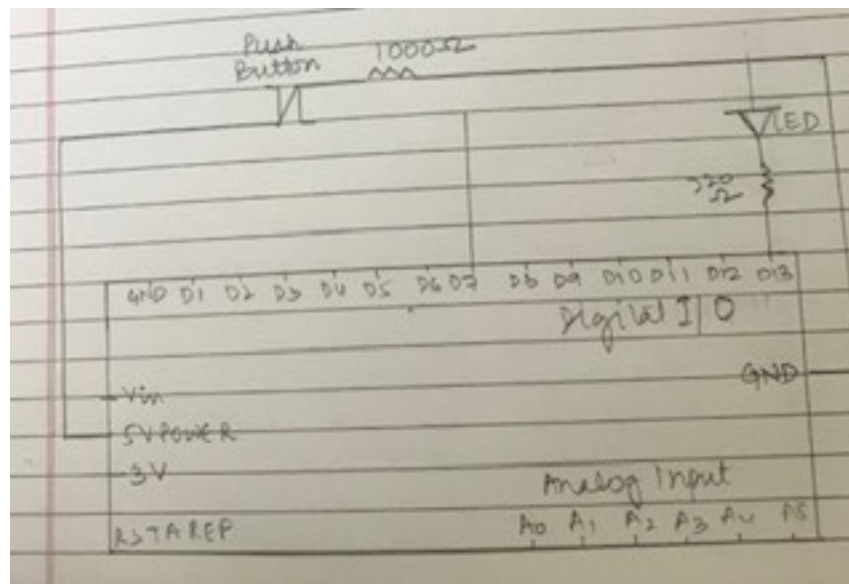 Push 1000Ω
Button
LED
Ω
GND D1 D2 D3 D4 D5 D6 D7 D8 D9 D10 D11 D12 D13
Digital I/O
GND
Vin
5V POWER
3V
Analog Input
A0 A1 A2 A3 A4 A5